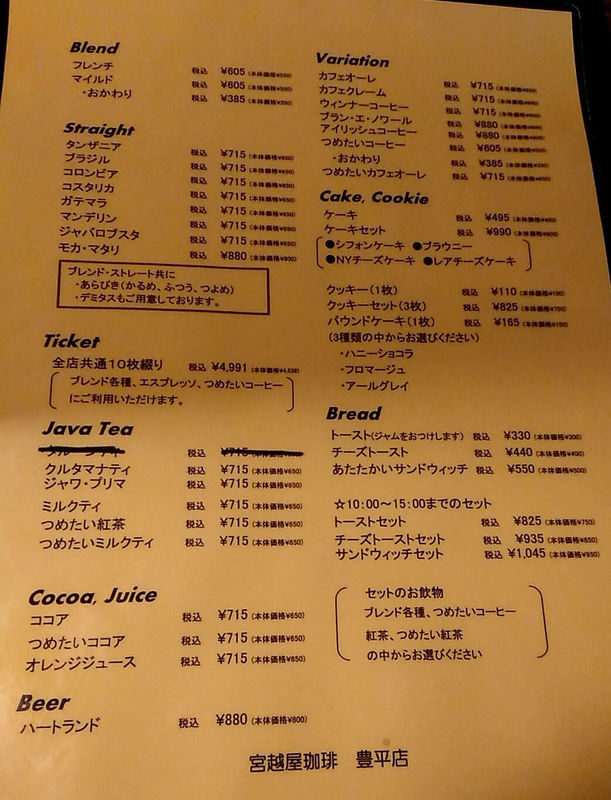 Blend
フレンチ 税込 ¥605 (本体価格¥550)
マイルド 税込 ¥605 (本体価格¥550)
・おかわり 税込 ¥385 (本体価格¥350)
Straight
タンザニア 税込 ¥715 (本体価格¥650)
ブラジル 税込 ¥715 (本体価格¥650)
コロンビア 税込 ¥715 (本体価格¥650)
コスタリカ 税込 ¥715 (本体価格¥650)
ガテマラ 税込 ¥715 (本体価格¥650)
マンデリン 税込 ¥715 (本体価格¥650)
ジャバロブスタ 税込 ¥715 (本体価格¥650)
モカ・マタリ 税込 ¥880 (本体価格¥800)
ブレンド・ストレート共に
・あらびき(かるめ、ふつう、つよめ)
・デミタスもご用意しております。
Ticket
全店共通10枚綴り 税込 ¥4,991 (本体価格¥4,538)
ブレンド各種、エスプレッソ、つめたいコーヒー
にご利用いただけます。
Java Tea
税込 ¥715
クルタマナティ 税込 ¥715 (本体価格¥650)
ジャワ・プリマ 税込 ¥715 (本体価格¥650)
ミルクティ 税込 ¥715 (本体価格¥650)
つめたい紅茶 税込 ¥715 (本体価格¥650)
つめたいミルクティ 税込 ¥715 (本体価格¥650)
Cocoa, Juice
ココア 税込 ¥715 (本体価格¥650)
つめたいココア 税込 ¥715 (本体価格¥650)
オレンジジュース 税込 ¥715 (本体価格¥650)
Beer
ハートランド 税込 ¥880 (本体価格¥800)
Variation
カフェオーレ 税込 ¥715 (本体価格¥650)
カフェクレーム 税込 ¥715 (本体価格¥650)
ウィンナーコーヒー 税込 ¥715 (本体価格¥650)
ブラン・エ・ノワール 税込 ¥880 (本体価格¥800)
アイリッシュコーヒー 税込 ¥880 (本体価格¥800)
つめたいコーヒー 税込 ¥605 (本体価格¥550)
・おかわり 税込 ¥385 (本体価格¥350)
つめたいカフェオーレ 税込 ¥715 (本体価格¥650)
Cake, Cookie
ケーキ 税込 ¥495 (本体価格¥450)
ケーキセット 税込 ¥990 (本体価格¥900)
●シフォンケーキ ●ブラウニー
●NYチーズケーキ ●レアチーズケーキ
クッキー(1枚) 税込 ¥110 (本体価格¥100)
クッキーセット(3枚) 税込 ¥825 (本体価格¥750)
パウンドケーキ(1枚) 税込 ¥165 (本体価格¥150)
(3種類の中からお選びください)
・ハニーショコラ
・フロマージュ
・アールグレイ
Bread
トースト(ジャムをおつけします) 税込 ¥330 (本体価格¥300)
チーズトースト 税込 ¥440 (本体価格¥400)
あたたかいサンドウィッチ 税込 ¥550 (本体価格¥500)
☆10:00〜15:00までのセット
トーストセット 税込 ¥825 (本体価格¥750)
チーズトーストセット 税込 ¥935 (本体価格¥850)
サンドウィッチセット 税込 ¥1,045 (本体価格¥950)
セットのお飲物
ブレンド各種、つめたいコーヒー
紅茶、つめたい紅茶
の中からお選びください
宮越屋珈琲 豊平店